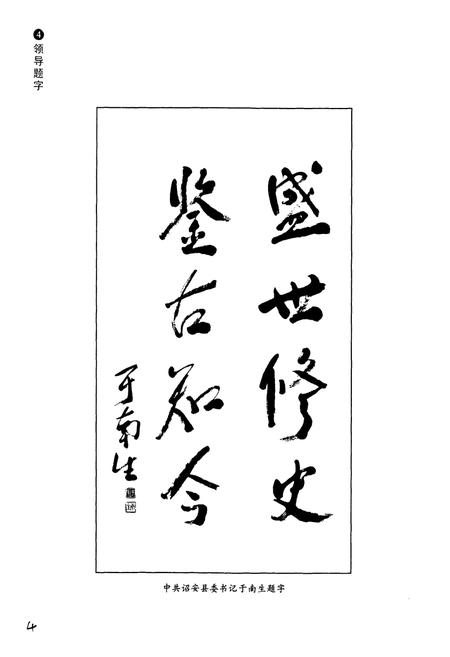 ❹领导题字
盛世修史
鉴古知今
于南生
中共诏安县委书记于南生题字
4